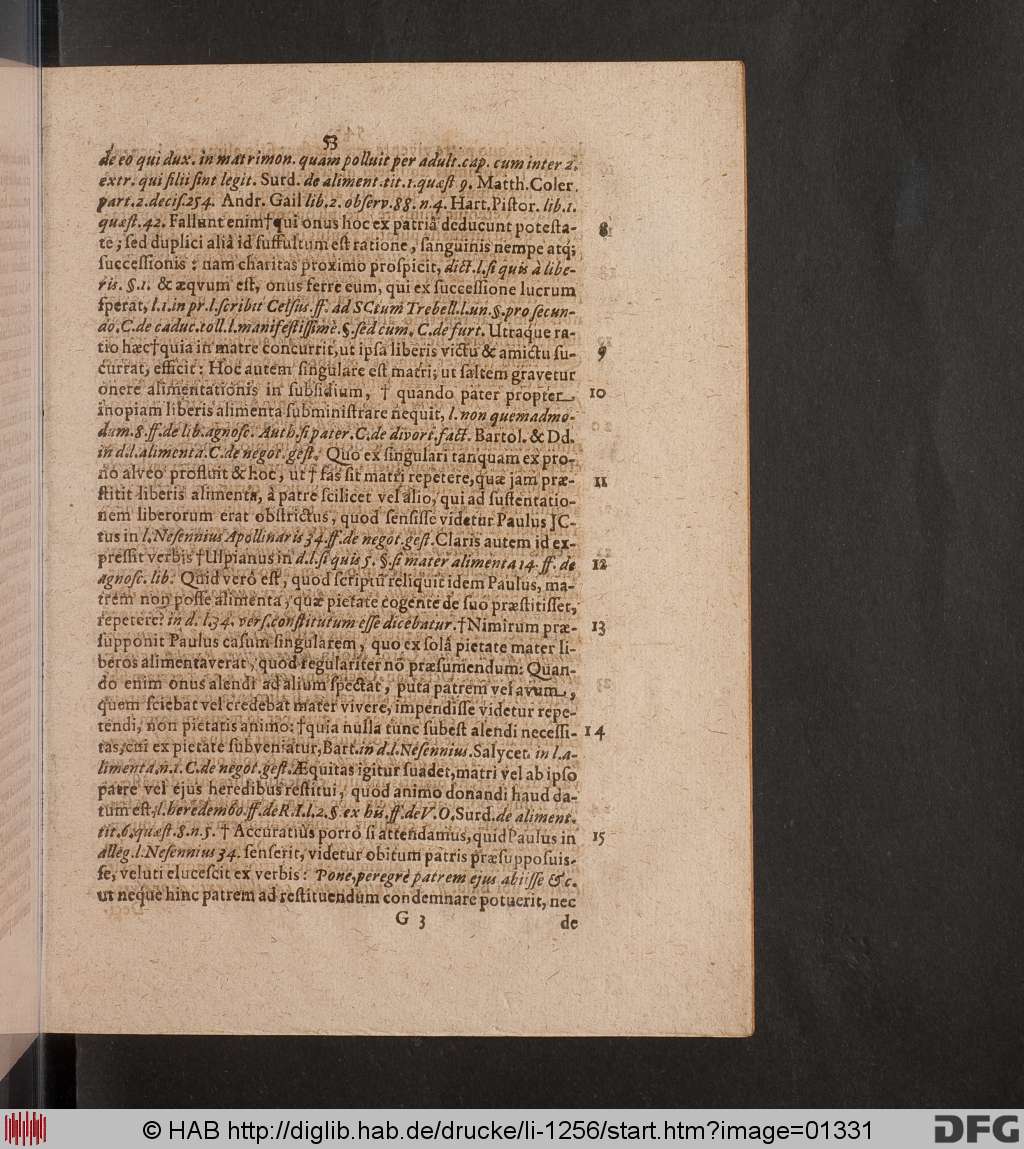 53
de eo qui dux. in matrimon. quam polluit per adult. cap. cum inter 2.
extr. qui filii sint legit. Surd. de aliment. tit. 1. quæst 9. Matth. Coler.
part. 2. decis. 254. Andr. Gail lib. 2. observ. 88. n. 4. Hart. Pistor. lib. 1.
quæst. 42. Fallunt enim † qui onus hoc ex patriâ deducunt potesta- 8
te; sed duplici aliâ id suffultum est ratione, sanguinis nempe atq;
successionis: nam charitas proximo prospicit, dict. l. si quis à libe-
ris. §. 1. & æqvum est, onus ferre eum, qui ex successione lucrum
sperat, l. 1. in pr. l. scribit Celsus. ff. ad SCtum Trebell. l. un. §. pro secun-
do. C. de caduc. toll. l. manifestissimè. §. sed cum. C. de furt. Utraque ra-
tio hæc † quia in matre concurrit, ut ipsa liberis victu & amictu su- 9
currat, efficit: Hoc autem singulare est matri; ut saltem gravetur
onere alimentationis in subsidium, † quando pater propter 10
inopiam liberis alimenta subministrare nequit, l. non quemadmo-
dum. 8. ff. de lib. agnosc. Auth. si pater. C. de divort. fact. Bartol. & Dd.
in d. l. alimenta. C. de negot. gest. Quo ex singulari tanquam ex pro-
no alveo profluit & hoc, ut † fas sit matri repetere, quæ jam præ- 11
stitit liberis alimenta, à patre scilicet vel alio, qui ad sustentatio-
nem liberorum erat obstrictus, quod sensisse videtur Paulus JC-
tus in l. Nesennius Apollinaris 34. ff. de negot. gest. Claris autem id ex-
pressit verbis † Ulpianus in d. l. si quis 5. §. si mater alimenta 14. ff. de 12
agnosc. lib. Quid verò est, quod scriptũ reliquit idem Paulus, ma-
trem non posse alimenta, quæ pietate cogente de suo præstitisset,
repetere? in d. l. 34. vers. constitutum esse dicebatur. † Nimirum præ- 13
supponit Paulus casum singularem, quo ex solâ pietate mater li-
beros alimentaverat, quod regulariter nõ præsumendum: Quan-
do enim onus alendi ad alium spectat, puta patrem vel avum,
quem sciebat vel credebat mater vivere, impendisse videtur repe-
tendi, non pietatis animo: † quia nulla tunc subest alendi necessi- 14
tas, cui ex pietate subveniatur, Bart. in d. l. Nesennius. Salycet. in l. a-
limenta. n. 1. C. de negot. gest. Æquitas igitur suadet, matri vel ab ipso
patre vel ejus heredibus restitui, quod animo donandi haud da-
tum est, l. heredem 60. ff. de R. I. l. 2. §. ex his. ff. de V. O. Surd. de aliment.
tit. 6. quæst. 8. n. 5. † Accuratius porrò si attendamus, quid Paulus in 15
alleg. l. Nesennius 34. senserit, videtur obitum patris præsupposuis-
se, veluti elucescit ex verbis: Pone, peregrè patrem ejus abiisse &c.
ut neque hinc patrem ad restituendum condemnare potuerit, nec
G 3 de
© HAB http://diglib.hab.de/drucke/li-1256/start.htm?image=01331
DFG